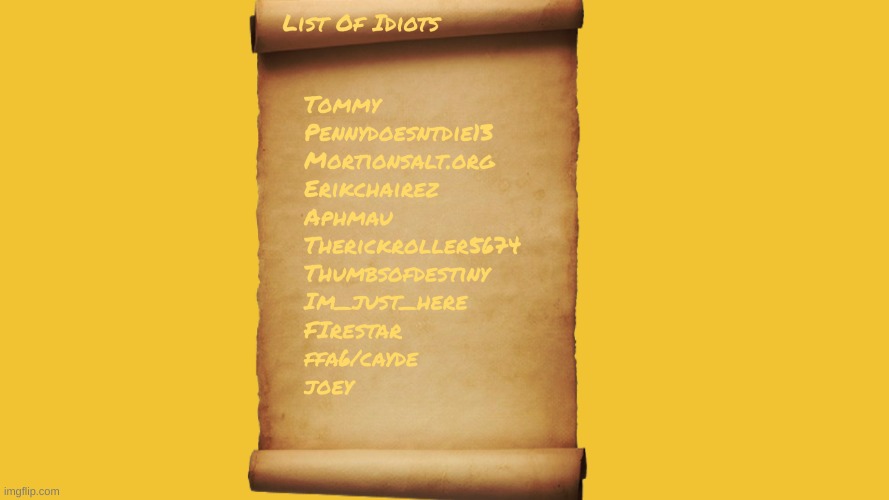 List Of Idiots
Tommy
Pennydoesntdie13
Mortionsalt.org
Erikchairez
Aphmau
Therickroller5674
Thumbsofdestiny
Im_just_here
FIrestar
ffa6/cayde
joey
imgflip.com